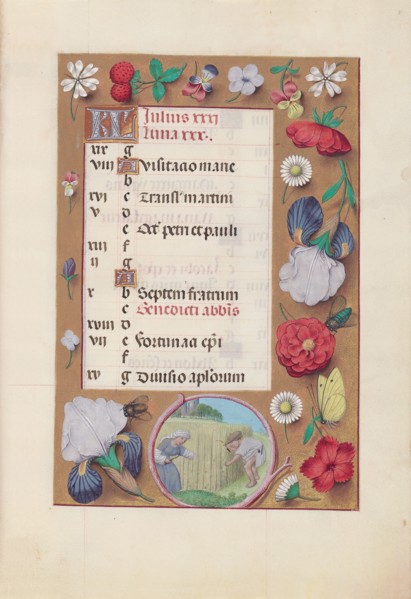 KL Julius xxxi
Luna xxx.
xix g
viii A Visitacio marie
b
xvi c Transl' martini
v d
e Oct' petri et pauli
xiii f
ii g
A
x b Septem fratrum
c Benedicti abbis
xviii d
vii e fortunati epi
f
xv g Divisio aplorum